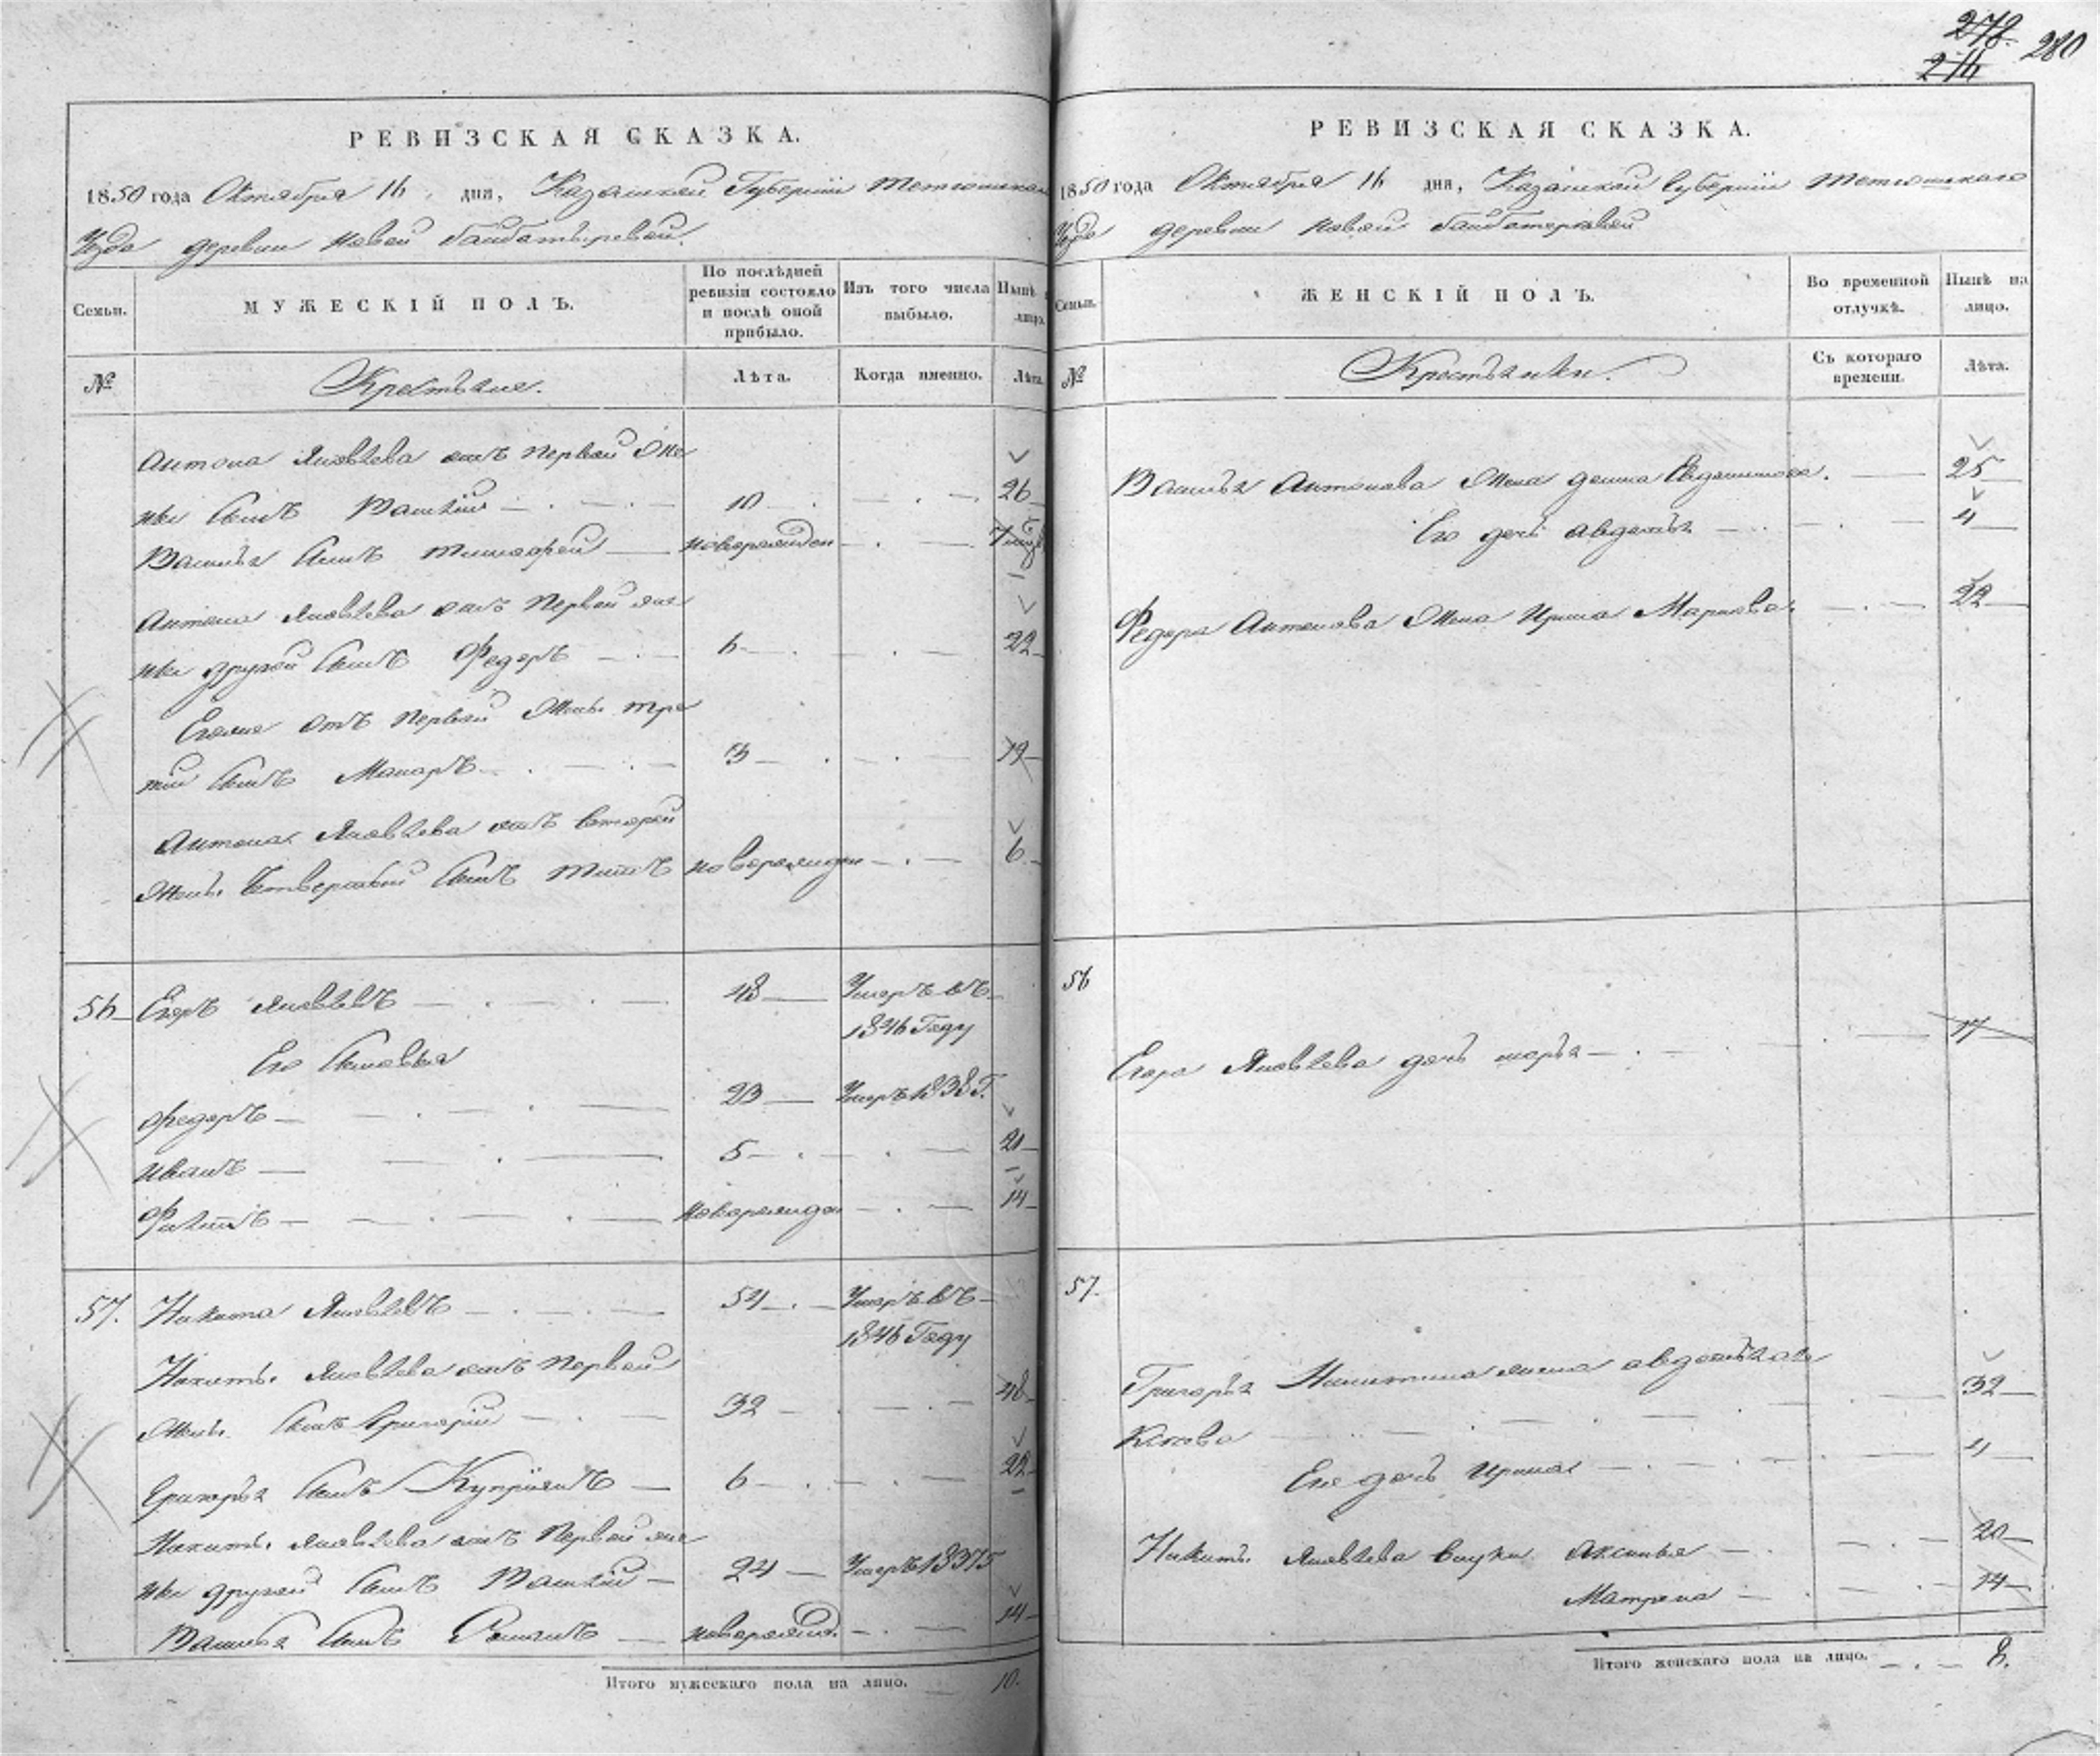 278. 280
214
РЕВИЗСКАЯ СКАЗКА.
1850 года Октября 16 дня, Казанской Губернии Тетюшскаго
Уезда деревни Новой Байбатыревой.
Семьи. МУЖЕСКІЙ ПОЛЪ. По послѣдней ревизіи состояло и послѣ оной прибыло. Изъ того числа выбыло. Нынѣ лицо.
№ Крестьяне. Лѣта. Когда именно. Лѣта.
Антона Яковлева отъ первой же
ны сынъ Василий 10 26
Василья сынъ Тимофей новорожден 7
Антона Яковлева отъ первой же
ны другой сынъ Федоръ 6 22
Егоже отъ первой жены тре
тий сынъ Макаръ 3 19
Антона Яковлева отъ второй
жены четвертый сынъ Титъ новорожден 6
56 Егоръ Яковлевъ 48 Умеръ въ
1846 Году
Его сыновья
Федоръ 23 Умеръ 1838 Г.
Иванъ 5 21
Филипъ новорожден 14
57. Никита Яковлевъ 54 Умеръ въ
1846 Году
Никиты Яковлева отъ первой
жены сынъ Григорий 32 48
Григорья сынъ Куприянъ 6 22
Никиты Яковлева отъ первой же
ны другой сынъ Василий 24 Умеръ 1837
Василья сынъ Романъ новорожд. 14
Итого мужескаго пола на лицо. 10.
РЕВИЗСКАЯ СКАЗКА.
1850 года Октября 16 дня, Казанской Губернии Тетюшскаго
Уезда деревни Новой Байбатыревой
Семьи. ЖЕНСКІЙ ПОЛЪ. Во временной отлучкѣ. Нынѣ на лицо.
№ Крестьянки. Съ котораго времени. Лѣта.
Василья Антонова жена 25
Его дочь Авдотья 4
Федора Антонова жена Ирина Маркова 22
56
Егора Яковлева дочь Марья 17
57.
Григорья Никитина жена Авдотья 32
Ево дочь Ирина 4
Никиты Яковлева внуки Аксинья 20
Матрена 14
Итого женскаго пола на лицо. 8.